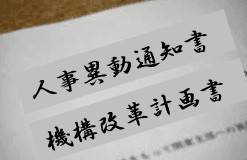 人事異動通知書
機構改革計画書